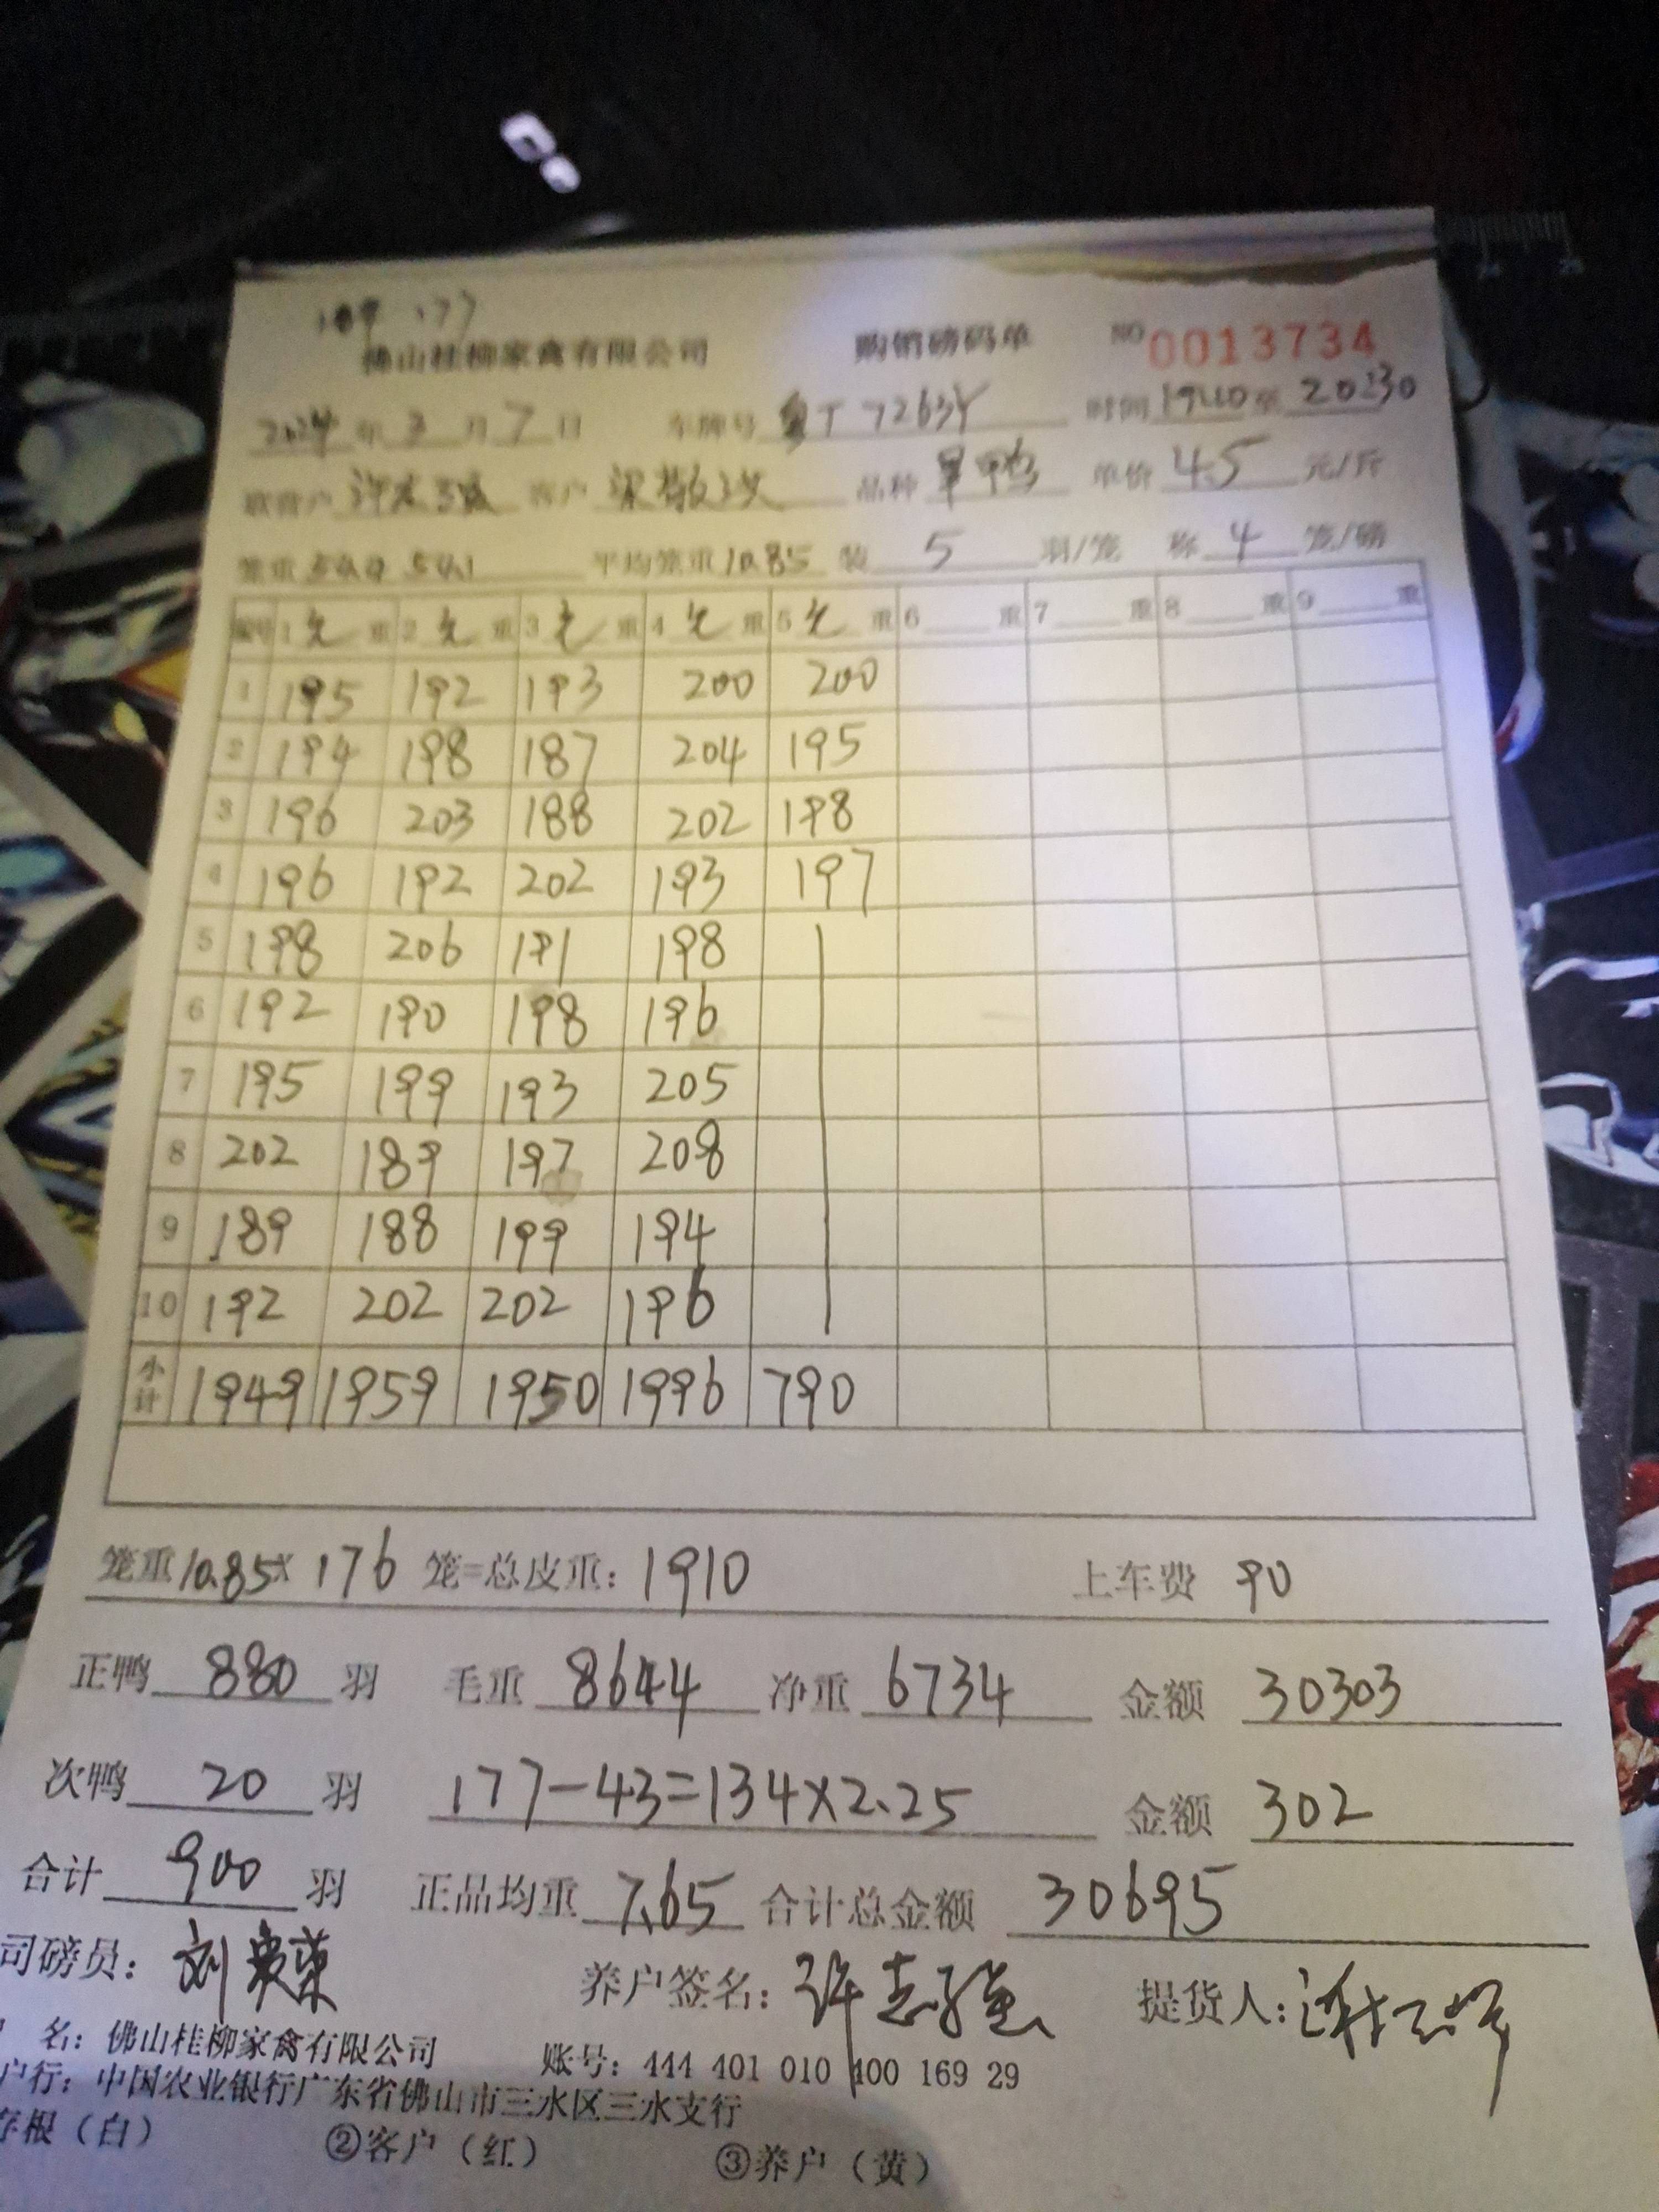 177
佛山桂柳家禽有限公司 购销磅码单 NO 0013734
2024年3月7日 车牌号 粤T 7263Y 时间 19:40 至 20:30
户 客户 梁敬 品种 旱鸭 单价 4.5 元/斤
笼重 54.1 平均笼重 10.85 装 5 羽/笼 称 4 笼/磅
编号 1 毛 重 2 毛 重 3 毛 重 4 毛 重 5 毛 重 6 重 7 重 8 重 9 重
1 195 192 193 200 200
2 194 198 187 204 195
3 196 203 188 202 198
4 196 192 202 193 197
5 198 206 191 198
6 192 190 198 196
7 195 199 193 205
8 202 189 197 208
9 189 188 199 194
10 192 202 202 196
小计 1949 1959 1950 1996 790
笼重 10.85 × 176 笼=总皮重: 1910 上车费 90
正鸭 880 羽 毛重 8644 净重 6734 金额 30303
次鸭 20 羽 177-43=134×2.25 金额 302
合计 900 羽 正品均重 7.65 合计总金额 30695
司磅员: 刘 荣 养户签名: 许志强 提货人:
名: 佛山桂柳家禽有限公司 账号: 444 401 010 400 169 29
户行: 中国农业银行广东省佛山市三水区三水支行
存根（白） ②客户（红） ③养户（黄）